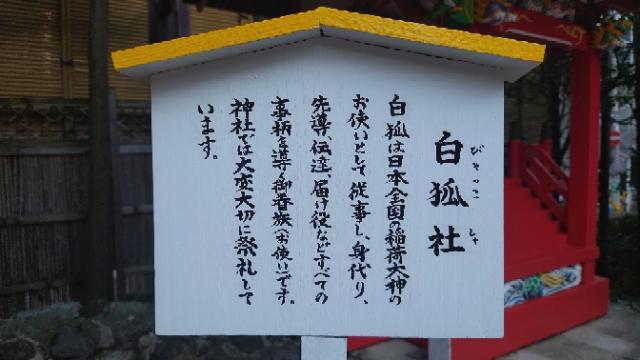 白狐社
びゃっこ しゃ
白狐は日本全国の稲荷大神の
お使いとして従事し、身代り、
先導、伝達、届け役などすべての
事柄を導く御眷族(お使い)です。
神社では大変大切に祭礼して
います。